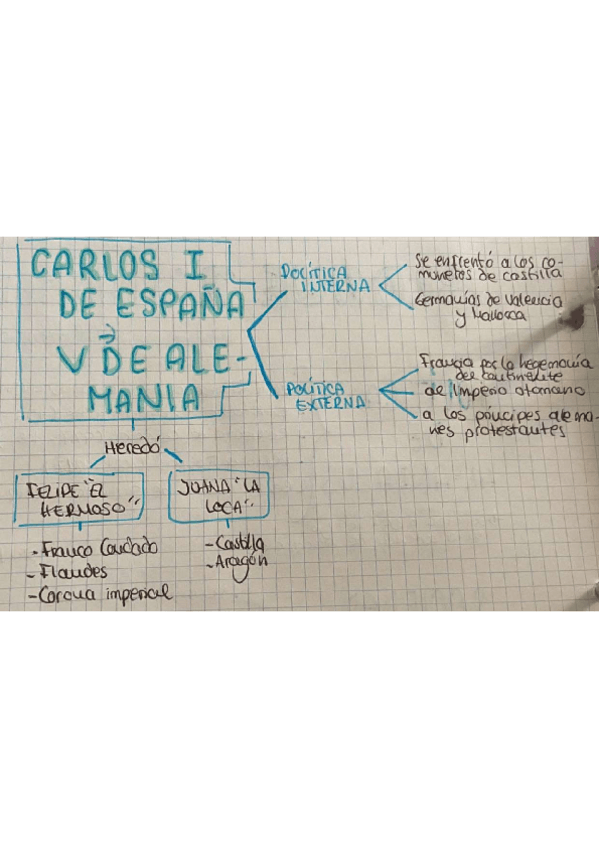 CARLOS I
DE ESPAÑA
Y
V DE ALE-
MANIA
POLÍTICA
INTERNA
Se enfrentó a los co-
muneros de castilla
Germanías de Valencia
y Mallorca
POLÍTICA
EXTERNA
Francia por la hegemonía
del continente
del Imperio otomano
a los príncipes alema-
nes protestantes
Heredó
FELIPE "EL
HERMOSO"
- Franco Condado
- Flandes
- Corona imperial
JUANA "LA
LOCA"
- Castilla
- Aragón